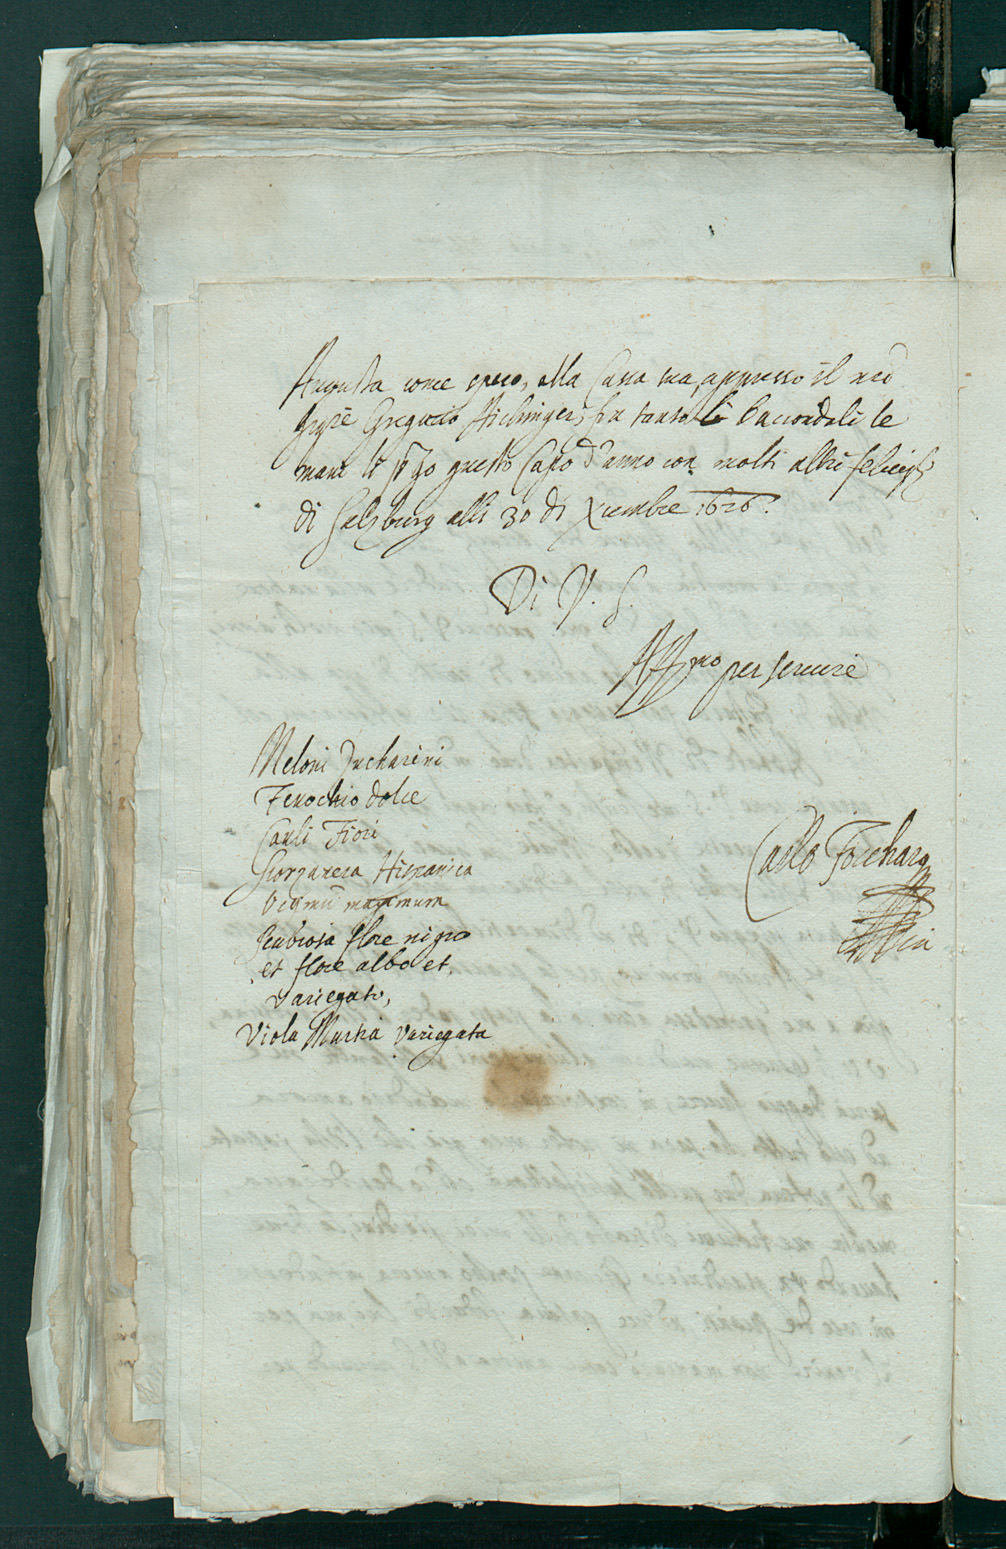 Augusta come spero, alla Casa sua, appresso il
Gregorio Aichinger, fra tanto li bacciandoli le
mani li questo Capo d'anno con molti altri
di Salzburg alli 30 di Xcembre 1626.
Di V. S.
Aff.mo per servire
Meloni Zucharini
Fenochio dolce
Cauli Fiori
Carlo
Hispanica
maximum
Scabiosa flore nigro
et flore albo et
variegato,
Viola Martia variegata